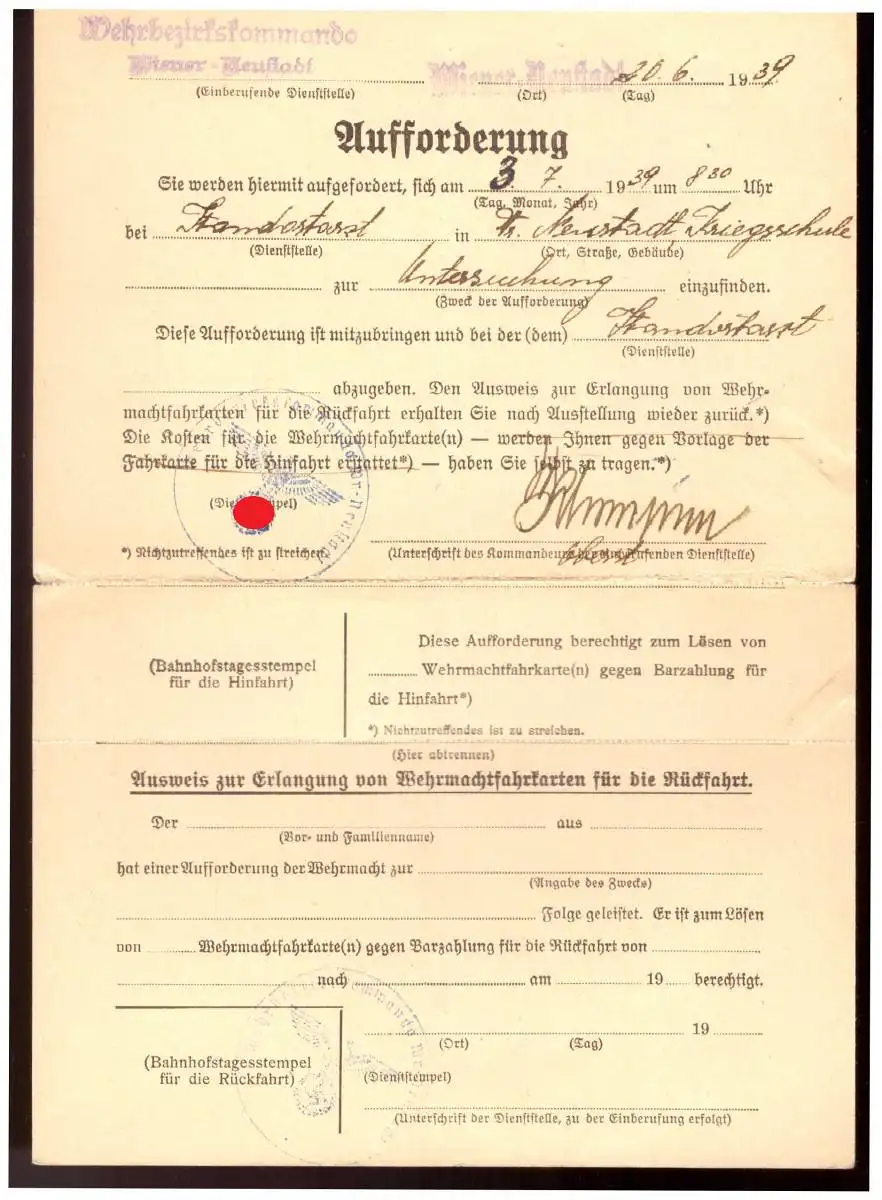 Wehrbezirkskommando
Wiener-Neustadt
Wiener-Neustadt 20. 6. 1939
(Einberufende Dienststelle) (Ort) (Tag)
Aufforderung
Sie werden hiermit aufgefordert, sich am 3. 7. 1939 um 8 30 Uhr
(Tag, Monat, Jahr)
bei Standortarzt in Wr. Neustadt, Kriegsschule
(Dienststelle) (Ort, Straße, Gebäude)
zur Untersuchung einzufinden.
(Zweck der Aufforderung)
Diese Aufforderung ist mitzubringen und bei der (dem) Standortarzt
(Dienststelle)
abzugeben. Den Ausweis zur Erlangung von Wehr-
machtfahrkarten für die Rückfahrt erhalten Sie nach Ausstellung wieder zurück.*)
Die Kosten für die Wehrmachtfahrkarte(n) — werden Ihnen gegen Vorlage der
Fahrkarte für die Hinfahrt erstattet*) — haben Sie selbst zu tragen.*)
Wr-Neustadt
*) Nichtzutreffendes ist zu streichen. (Unterschrift des Kommandeurs der einberufenden Dienststelle)
Oberst
(Bahnhofstagesstempel
für die Hinfahrt)
Diese Aufforderung berechtigt zum Lösen von
Wehrmachtfahrkarte(n) gegen Barzahlung für
die Hinfahrt*)
*) Nichtzutreffendes ist zu streichen.
(Hier abtrennen)
Ausweis zur Erlangung von Wehrmachtfahrkarten für die Rückfahrt.
Der aus
(Vor- und Familienname)
hat einer Aufforderung der Wehrmacht zur
(Angabe des Zwecks)
Folge geleistet. Er ist zum Lösen
von Wehrmachtfahrkarte(n) gegen Barzahlung für die Rückfahrt von
nach am 19 berechtigt.
19
(Ort) (Tag)
(Bahnhofstagesstempel
für die Rückfahrt)
(Dienststempel)
(Unterschrift der Dienststelle, zu der Einberufung erfolgt)